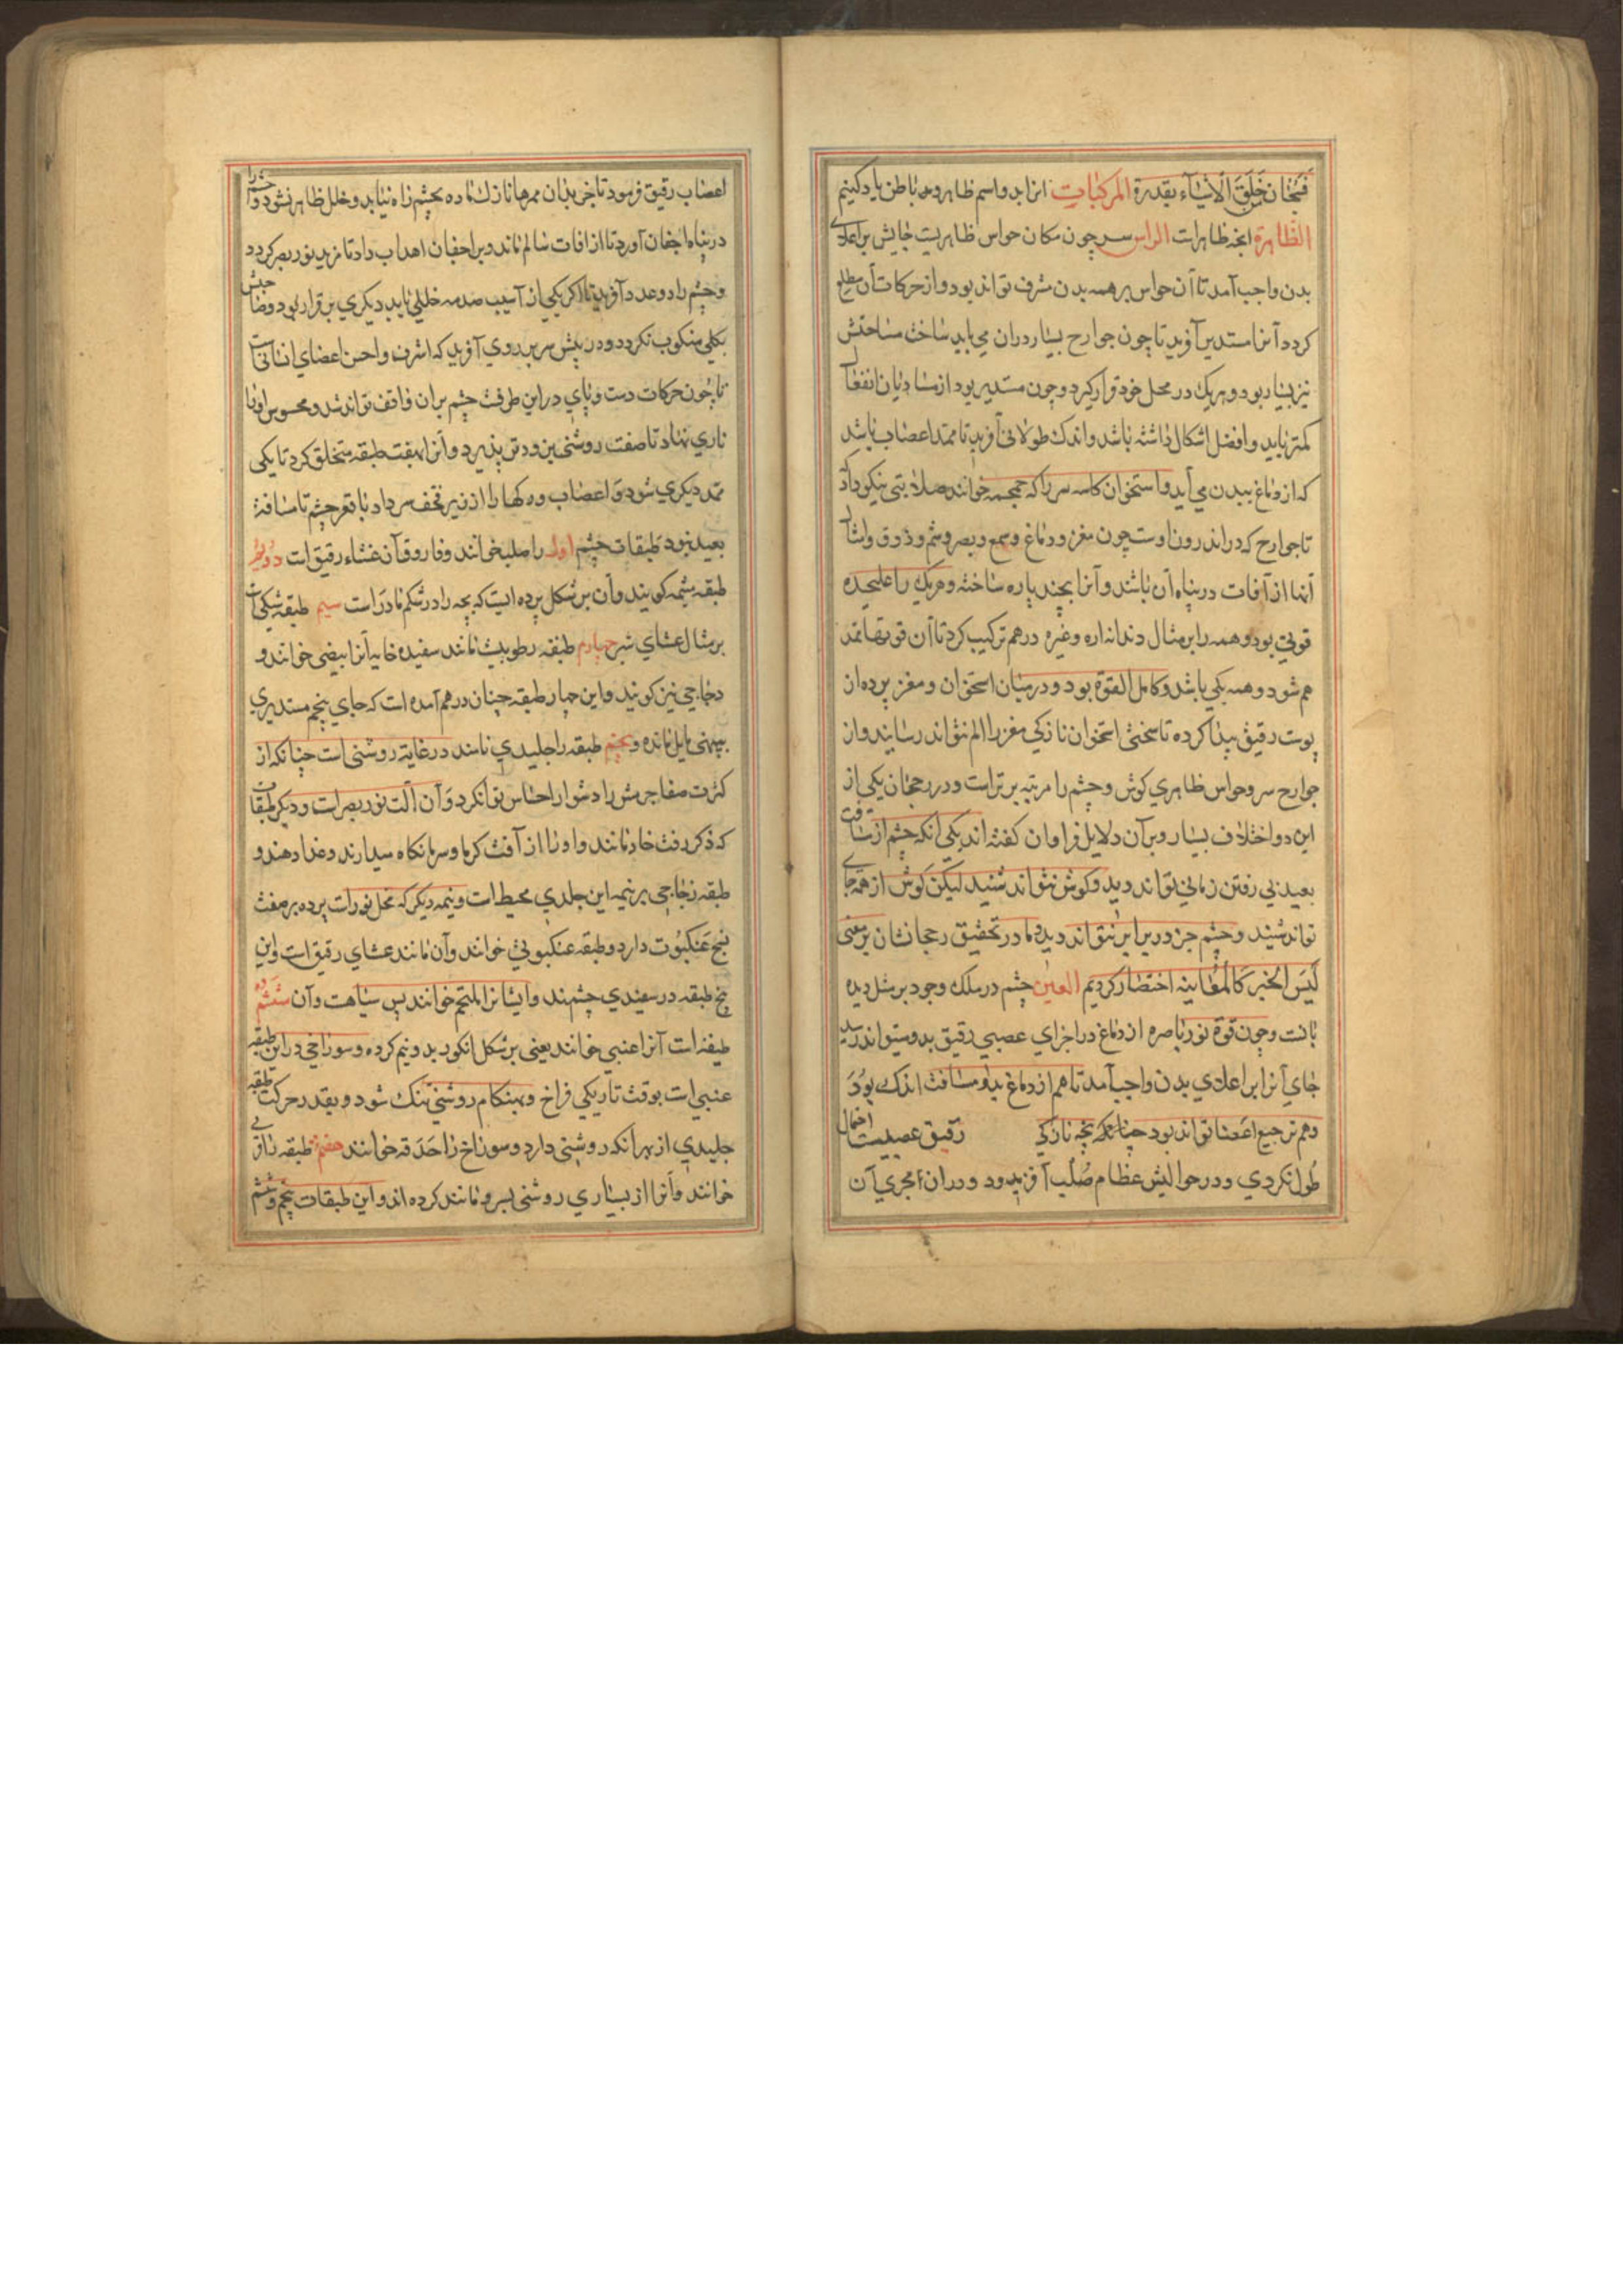 فسبحان خلق الاشیاء بقدرة المرکبات انرا بدو اسم ظاهر و باطن یاد کنیم
الظاهرة انچه ظاهرات الراس سر چون مکان حواس ظاهریست جایش بر اعلای
بدن واجب آمد تا آن حواس بر همه بدن مشرف تواند بود و از حرکات آن مطلع
کردد آنرا مستدیر آفرید تا چون جوارح بسیار دران می باید ساخت مساحتش
نیز بسیار بود و هریک در محل خود قرار کیرد و چون مستدیر بود از مصادمات انفعال
کمتر یابد و افضل اشکال داشته باشد و اندک طولانی آفرید تا ممتد اعصاب باشد
که از دماغ ببدن می آید و استخوان کاسه سر را که جمجمه خوانند صلابتی نیکو داد
تا جوارح که در اندرون اوست چون مغز و دماغ و سمع و بصر و شم و ذوق و امثال
آنها از آفات در پناه آن باشد و آنرا بچند پاره ساخته و هریک را علیحده
قوتی بود و همه را بر مثال دندانه اره و غیره درهم ترکیب کرد تا آن قوتها ممد
هم شود و همه یکی باشد و کامل القوة بود و در میان استخوان و مغز پرده از
پوست رقیق پیدا کرده تا سختی استخوان نازکی مغز را الم نتواند رسانید و از
جوارح سر و حواس ظاهری کوش و چشم را مرتبه برتر است و در رجحان یکی از
این دو اختلاف بسیار و بر آن دلایل فراوان کفته اند یکی آنکه چشم از مسافت
بعید بی رفتن زمانی تواند دید و کوش نتواند شنید لیکن کوش از همه جای
تواند شنید و چشم جز در برابر نتواند دید اما در تحقیق رجحانشان بر معنی
لیس الخبر کالمعاینه اختصار کردیم العین چشم در ملک وجود بر مثل دیده
بانست و چون قوة نور باصره از دماغ در اجزای عصبی رقیق بدو میتواند رسید
جای آنرا بر اعلای بدن واجب آمد تا هم از دماغ بدو مسافت اندک بود
و هم بر جمیع اعضا تواند بود چنانکه بچه نازکی رقیق عصبیت احتمال
طول نکردی و در حوالیش عظام صلب آفرید و دران مجری آن
اعصاب رقیق فرمود تا جز بدان ممرها نازک ماده بچشم راه نیابد و خلل ظاهر نشود و چشم را
در پناه اجفان آورد تا از افات سالم ماند و بر اجفان اهداب داد تا مزید نور بصر کردد
و چشم را دو عدد آفرید تا اکر یکی از آسیب صدمه خللی یابد دیکری برقرار بود و صاحبش
بکلی منکوب نکردد و در پیش سر بر روی آفرید که اشرف و احسن اعضای انسانی است
تا چون حرکات دست و پای در این طرفست چشم بران واقف تواند شد و محسوس او را
ناری نهاد تا صفت روشنی زودتر پذیرد و آنرا هفت طبقه متخلق کرد تا یکی
ممد دیکری شود و اعصاب و رکها را از زیر قحف سر داد تا قعر چشم تا مسافت
بعید نبود طبقات چشم اول را صلبیه خوانند و فاروق آن غشاء رقیق است دویم
طبقه مشیمه کویند و آن بر شکل پرده ایست که بچه را در شکم مادر است سیم طبقه شبکی است
بر مثال غشای شیر چهارم طبقه رطوبیت مانند سفیده خایه آنرا بیضی خوانند و
زجاجی نیز کویند و این چهار طبقه چنان درهم آمده است که جای پنجم مستدیری
بپهنی مایل مانده و پنجم طبقه را جلیدی نامند در غایه روشنی است چنانکه از
کثرت صفا جرمش را دشوار احساس توان کرد و آن آلت نور بصر است و دیکر طبقات
که ذکر رفت خادمانند و او را از آفت کرما و سرما نکاه میدارند و غذا دهند و
طبقه زجاجی بر نیمه این جلدی محیط است و نیمه دیکر که محل نور است پرده بر صفت
نسج عنکبوت دارد و طبقه عنکبوتی خوانند و آن مانند غشای رقیق است و این
پنج طبقه در سفیدی چشمند و ایشانرا ملتحم خوانند پس سیاهست و آن ششم
طبقه است آنرا عنبی خوانند یعنی بر شکل انکور بدو نیم کرده و سوراخی در این طبقه
عنبی است بوقت تاریکی فراخ و بهنکام روشنی تنک شود و بقدر حرکت طبقه
جلیدی از بهر آنکه روشنی دارد و سوراخ را حدقه خوانند هفتم طبقه را قرنی
خوانند و آنرا از بسیاری روشنی بسرو مانند کرده اند و این طبقات پنجم و ششم